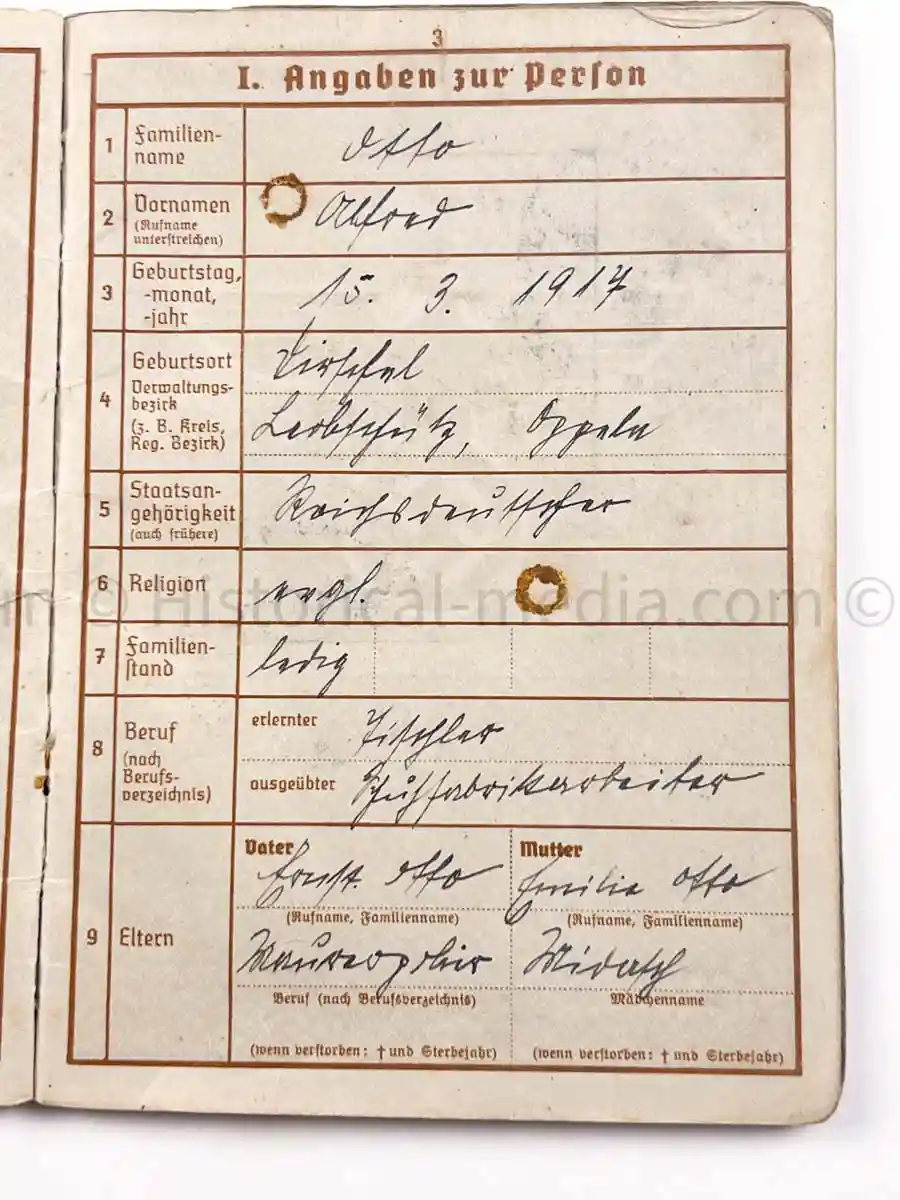 3
I. Angaben zur Person
1 Familien-
name
Otto
2 Vornamen
(Rufname
unterstreichen)
Alfred
3 Geburtstag,
-monat,
-jahr
15. 3. 1917
4 Geburtsort
Verwaltungs-
bezirk
(z. B. Kreis,
Reg. Bezirk)
Leobschütz, Oppeln
5 Staatsan-
gehörigkeit
(auch frühere)
Reichsdeutscher
6 Religion
in © Historical-media.com ©
7 Familien-
stand
ledig
8 Beruf
(nach
Berufs-
verzeichnis)
erlernter Tischler
ausgeübter Schuhfabrikarbeiter
9 Eltern
Vater
Ernst Otto
(Rufname, Familienname)
Maurerpolier
Beruf (nach Berufsverzeichnis)
(wenn verstorben: † und Sterbejahr)
Mutter
Emilie Otto
(Rufname, Familienname)
Mädchenname
(wenn verstorben: † und Sterbejahr)